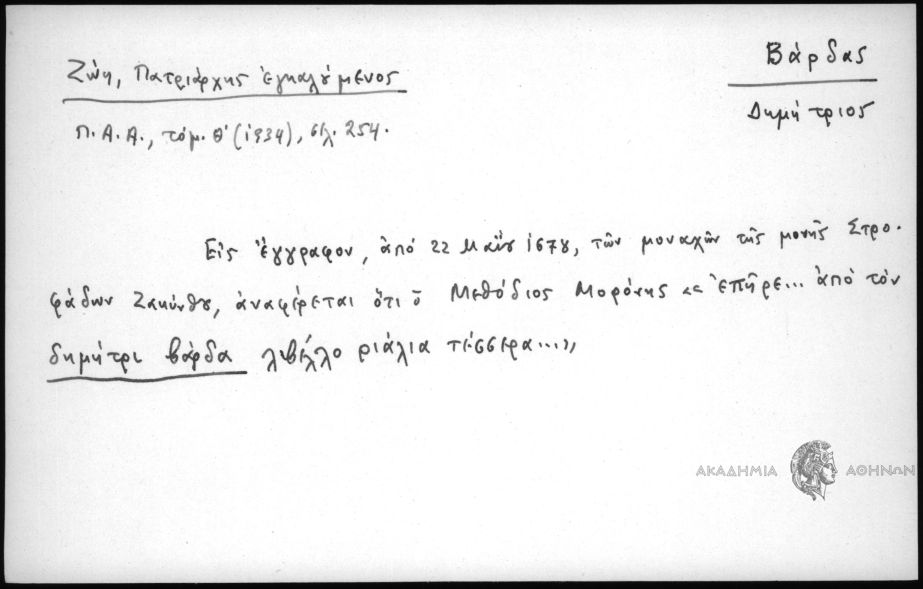 Βάρδας
Δημήτριος
Ζώη, Πατριάρχης ἐγκαλούμενος
Π.Α.Α., τόμ. Θ' (1934), σελ. 254.
Εἰς ἔγγραφον, ἀπό 22 Μαΐου 1678, τῶν μοναχῶν τῆς μονῆς Στρο-
φάδων Ζακύνθου, ἀναφέρεται ὅτι ὁ Μεθόδιος «ἐπῆρε... ἀπό τόν
δημήτρι βάρδα λιβέλλο ριάλια τέσσερα...»
ΑΚΑΔΗΜΙΑ ΑΘΗΝΩΝ